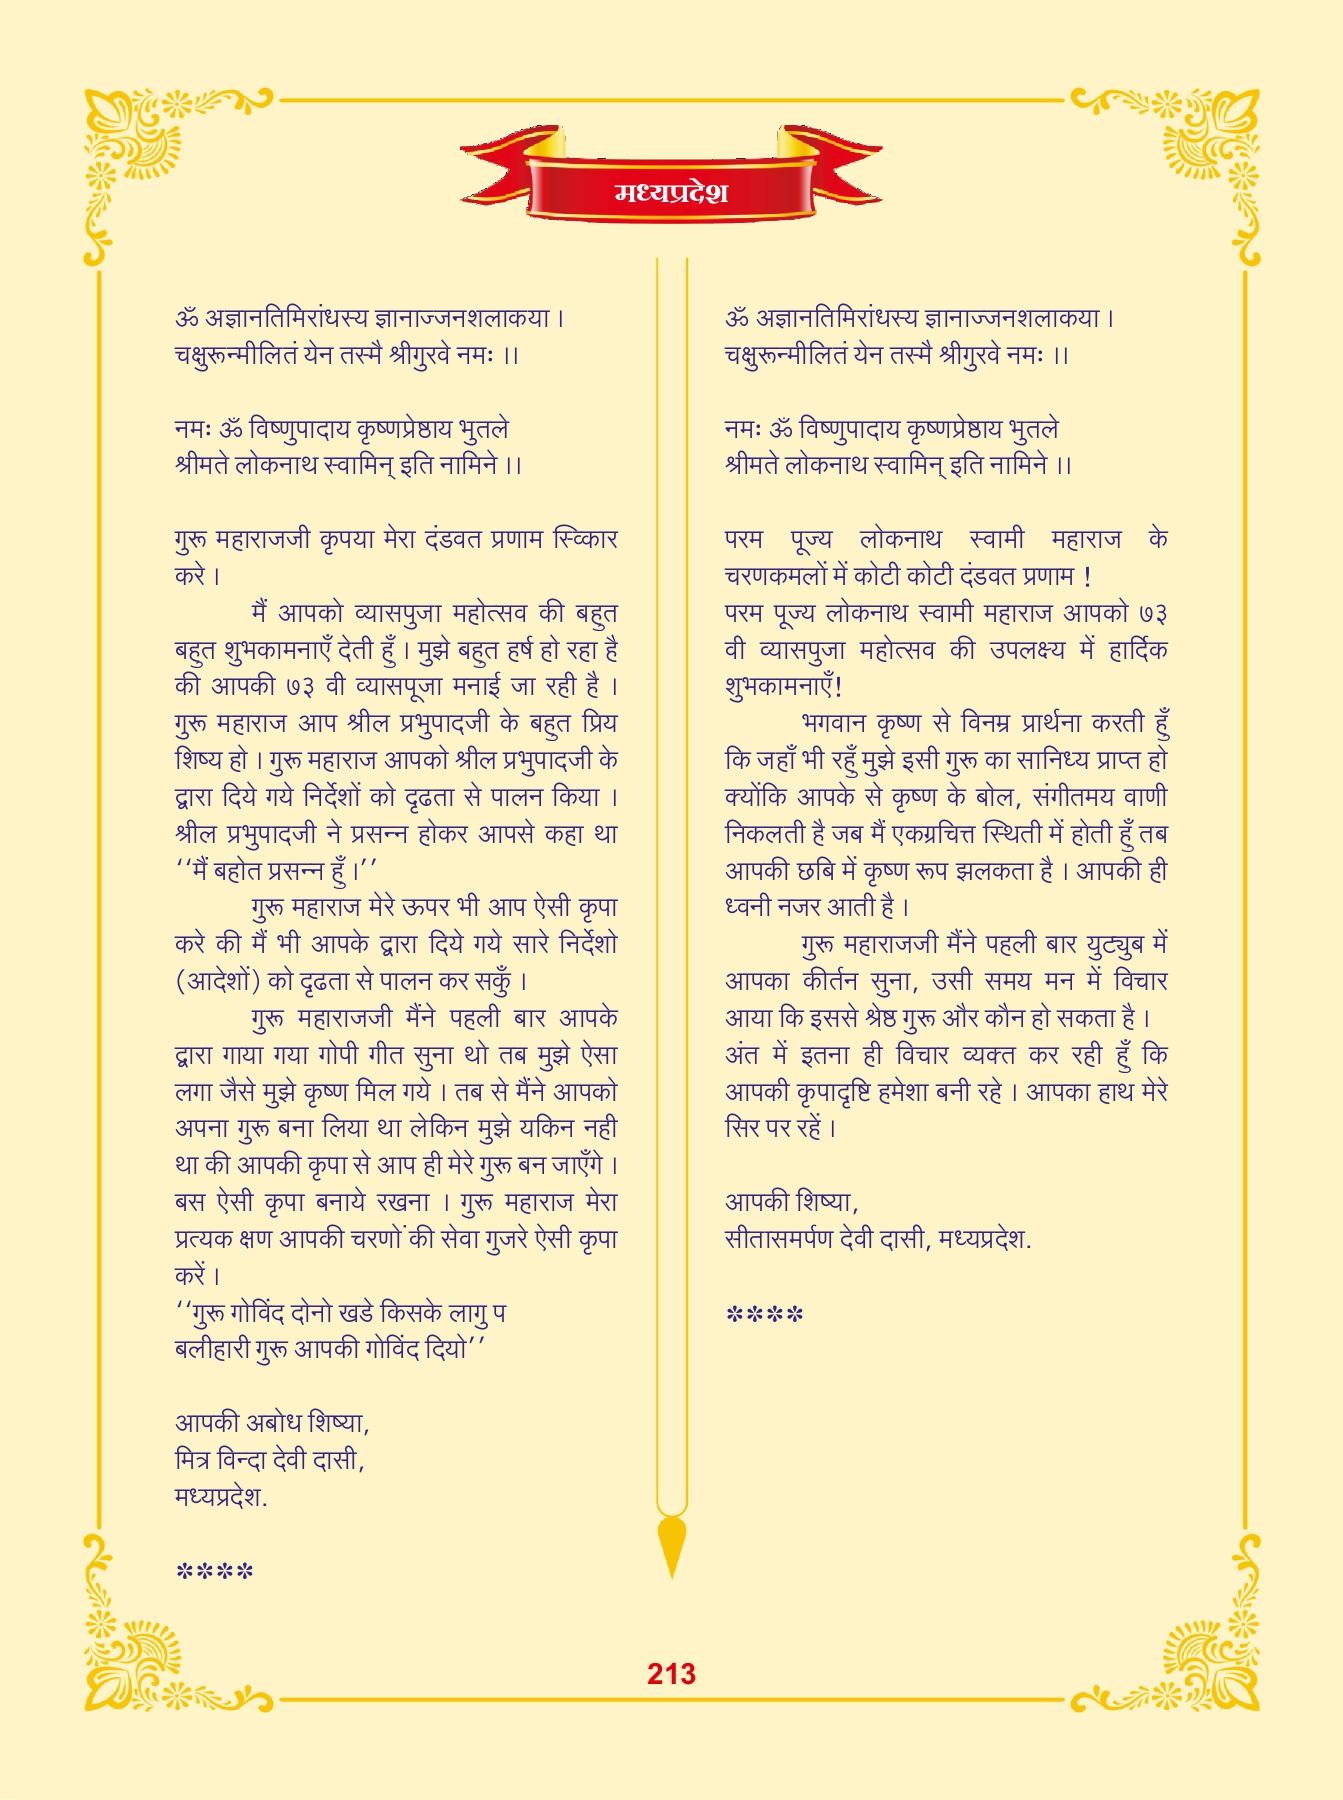 मध्यप्रदेश
ॐ अज्ञानतिमिरांधस्य ज्ञानाज्जनशलाकया ।
चक्षुरून्मीलितं येन तस्मै श्रीगुरवे नमः ।।
नमः ॐ विष्णुपादाय कृष्णप्रेष्ठाय भुतले
श्रीमते लोकनाथ स्वामिन् इति नामिने ।।
गुरू महाराजजी कृपया मेरा दंडवत प्रणाम स्विकार
करे ।
मैं आपको व्यासपुजा महोत्सव की बहुत
बहुत शुभकामनाएँ देती हूँ । मुझे बहुत हर्ष हो रहा है
की आपकी ७३ वी व्यासपूजा मनाई जा रही है ।
गुरू महाराज आप श्रील प्रभुपादजी के बहुत प्रिय
शिष्य हो । गुरू महाराज आपको श्रील प्रभुपादजी के
द्वारा दिये गये निर्देशों को दृढता से पालन किया ।
श्रील प्रभुपादजी ने प्रसन्न होकर आपसे कहा था
‘‘मैं बहोत प्रसन्न हूँ ।’’
गुरू महाराज मेरे ऊपर भी आप ऐसी कृपा
करे की मैं भी आपके द्वारा दिये गये सारे निर्देशो
(आदेशों) को दृढता से पालन कर सकुँ ।
गुरू महाराजजी मैंने पहली बार आपके
द्वारा गाया गया गोपी गीत सुना थो तब मुझे ऐसा
लगा जैसे मुझे कृष्ण मिल गये । तब से मैंने आपको
अपना गुरू बना लिया था लेकिन मुझे यकिन नही
था की आपकी कृपा से आप ही मेरे गुरू बन जाएँगे ।
बस ऐसी कृपा बनाये रखना । गुरू महाराज मेरा
प्रत्यक क्षण आपकी चरणों की सेवा गुजरे ऐसी कृपा
करें ।
‘‘गुरू गोविंद दोनो खडे किसके लागु प
बलीहारी गुरू आपकी गोविंद दियो’’
आपकी अबोध शिष्या,
मित्र विन्दा देवी दासी,
मध्यप्रदेश.
****
ॐ अज्ञानतिमिरांधस्य ज्ञानाज्जनशलाकया ।
चक्षुरून्मीलितं येन तस्मै श्रीगुरवे नमः ।।
नमः ॐ विष्णुपादाय कृष्णप्रेष्ठाय भुतले
श्रीमते लोकनाथ स्वामिन् इति नामिने ।।
परम पूज्य लोकनाथ स्वामी महाराज के
चरणकमलों में कोटी कोटी दंडवत प्रणाम !
परम पूज्य लोकनाथ स्वामी महाराज आपको ७३
वी व्यासपुजा महोत्सव की उपलक्ष्य में हार्दिक
शुभकामनाएँ!
भगवान कृष्ण से विनम्र प्रार्थना करती हुँ
कि जहाँ भी रहुँ मुझे इसी गुरू का सानिध्य प्राप्त हो
क्योंकि आपके से कृष्ण के बोल, संगीतमय वाणी
निकलती है जब मैं एकग्रचित्त स्थिती में होती हुँ तब
आपकी छबि में कृष्ण रूप झलकता है । आपकी ही
ध्वनी नजर आती है ।
गुरू महाराजजी मैंने पहली बार युट्युब में
आपका कीर्तन सुना, उसी समय मन में विचार
आया कि इससे श्रेष्ठ गुरू और कौन हो सकता है ।
अंत में इतना ही विचार व्यक्त कर रही हुँ कि
आपकी कृपादृष्टि हमेशा बनी रहे । आपका हाथ मेरे
सिर पर रहें ।
आपकी शिष्या,
सीतासमर्पण देवी दासी, मध्यप्रदेश.
****
213